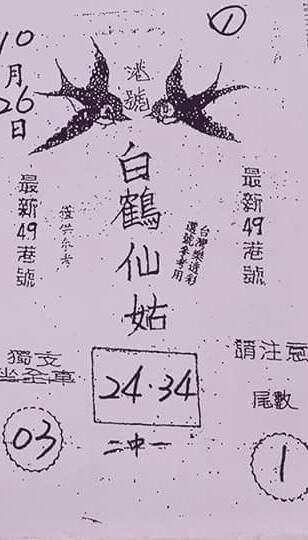 ①
10月26日
港號
白鶴仙姑
最新49港號
僅供參考
台灣樂透彩
選號參考用
最新49港號
獨支
坐全車
03
24.34
二中一
請注意
尾數
1